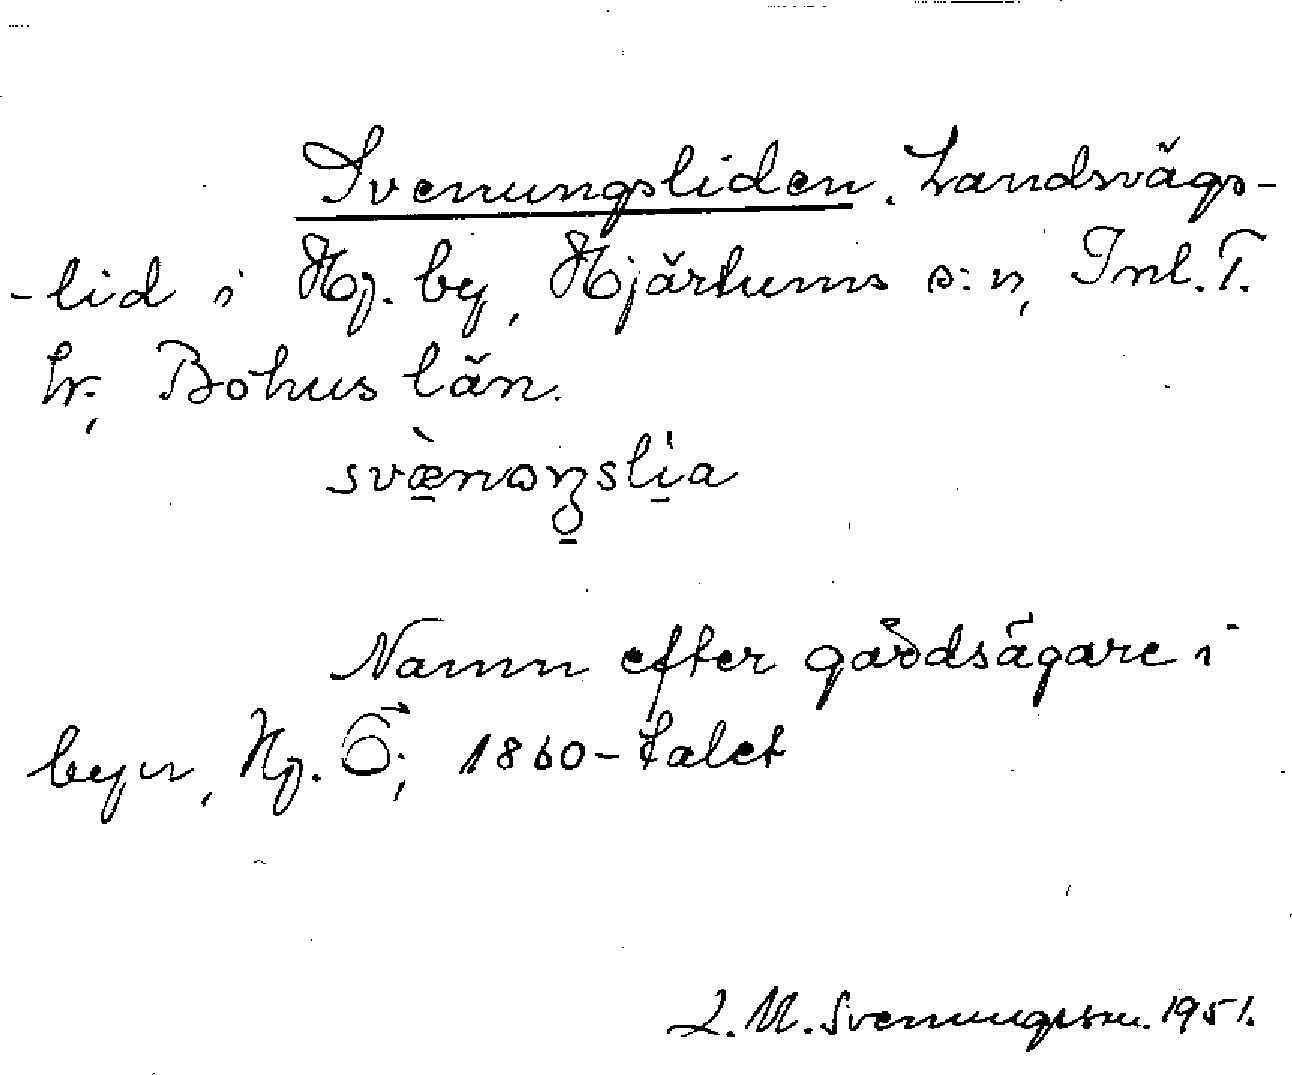 Svenungsliden. Landsvägs-
-lid i Hj. by, Hjärtums s:n, Inl. T.
hr, Bohus län.
svæ̀nωŋslia
Namn efter gårdsägare i
byn, Hj. Ö; 1860-talet
L. M. Svenungsson. 1951.